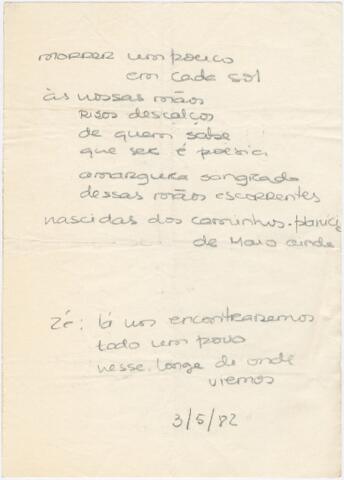 MORRER um pouco
em cada sol
às nossas mãos
RISOS descalços
de quem sabe
que ser é poesia
amargura sangrada
dessas mãos escorrentes
nascidas dos caminhos.
de Maio ainda
Zé: lá nos encontraremos
todo um povo
nesse longe de onde
viemos
3/5/82